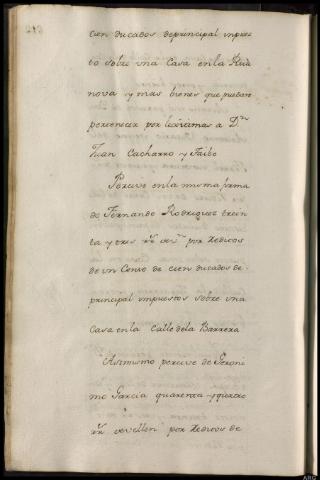 cien ducados deprincipal inpues
to sobre vna Casa enla Rua
nova y mas bienes que puedan
pertenecer por lexitimas a Dn
Juan Cacharro y Faibo
Percive enla misma forma
de Fernando Rodriguez trein
ta y tres rr.s vn. por Redicos
de un Censo de cien ducados de
principal impuestos sobre vna
Casa enla Calle dela Barrera
Asimismo percive de Geroni
mo Garcia quarenta y quatro
rr.s de vellon por Redicos de
ARG